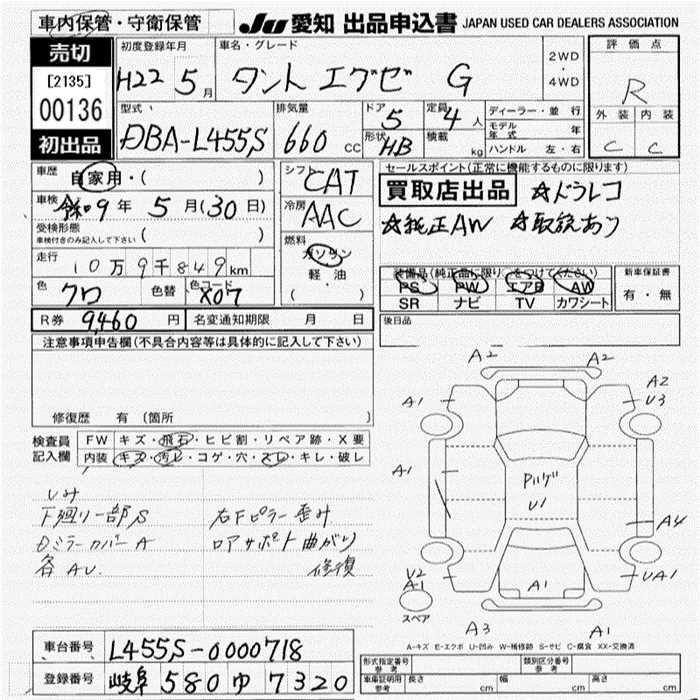 車内保管・守衛保管
JU 愛知 出品申込書 JAPAN USED CAR DEALERS ASSOCIATION
売切
[2135]
00136
初出品
初度登録年月
H22 5月
車名・グレード
タント エグゼ G
2WD
・
4WD
評価点
R
外装 内装
C C
型式
DBA-L455S
排気量
660 CC
ドア
5
定員
4人
形状
HB
積載
kg
ディーラー・並行
モデル年式 年
ハンドル 左・右
車歴
自家用・( )
車検
令和9年5月(30日)
受検形態
車検付きのみ記入して下さい ( )
走行
10万9千849km
色
クロ
色替
色コード
X07
シフト
CAT
冷房
AAC
燃料
ガソリン
軽・油
( )
セールスポイント(正常に機能するものに限ります)
買取店出品 ☆ドラレコ
☆純正AW ☆取説あり
装備品(純正品に限り○をつけてください)
PS PW エアB AW
SR ナビ TV カワシート
新車保証書
有・無
R券 9,460 円 名変通知期限 月 日
後日品
注意事項申告欄(不具合内容等は具体的に記入して下さい)
修復歴 有 (箇所 )
検査員記入欄
FW キズ・飛石・ヒビ割・リペア跡・X要
内装 キズ・汚レ・コゲ・穴・スレ・キレ・破レ
シミ
下廻り一部S
Dミラーカバー A
各AU.
右Fピラー歪み
コアサポート曲がり
修復
A2 A2
A1
A2
U3
A1
Pルゲ
U1
A4
U2
A1
A1
UA1
スペア
A3 A1
A-キズ E-エクボ U-凹み W-補修跡 S-サビ C-腐食 XX-交換済
車台番号 L455S-0000718
登録番号 岐阜 580 ゆ 7320
形式指定番号
参考
類別区分番号
参考
車庫証明用
参考
長さ cm 幅 cm 高さ cm